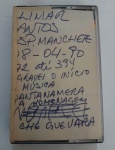 LIMAR
ANTOS
SP MANCHETE
18-04-90
72 até 394
GRAVEI O INÍCIO
MÚSICA
ANTANAMERA
A HOMENAGEM
CHE GUEVARA